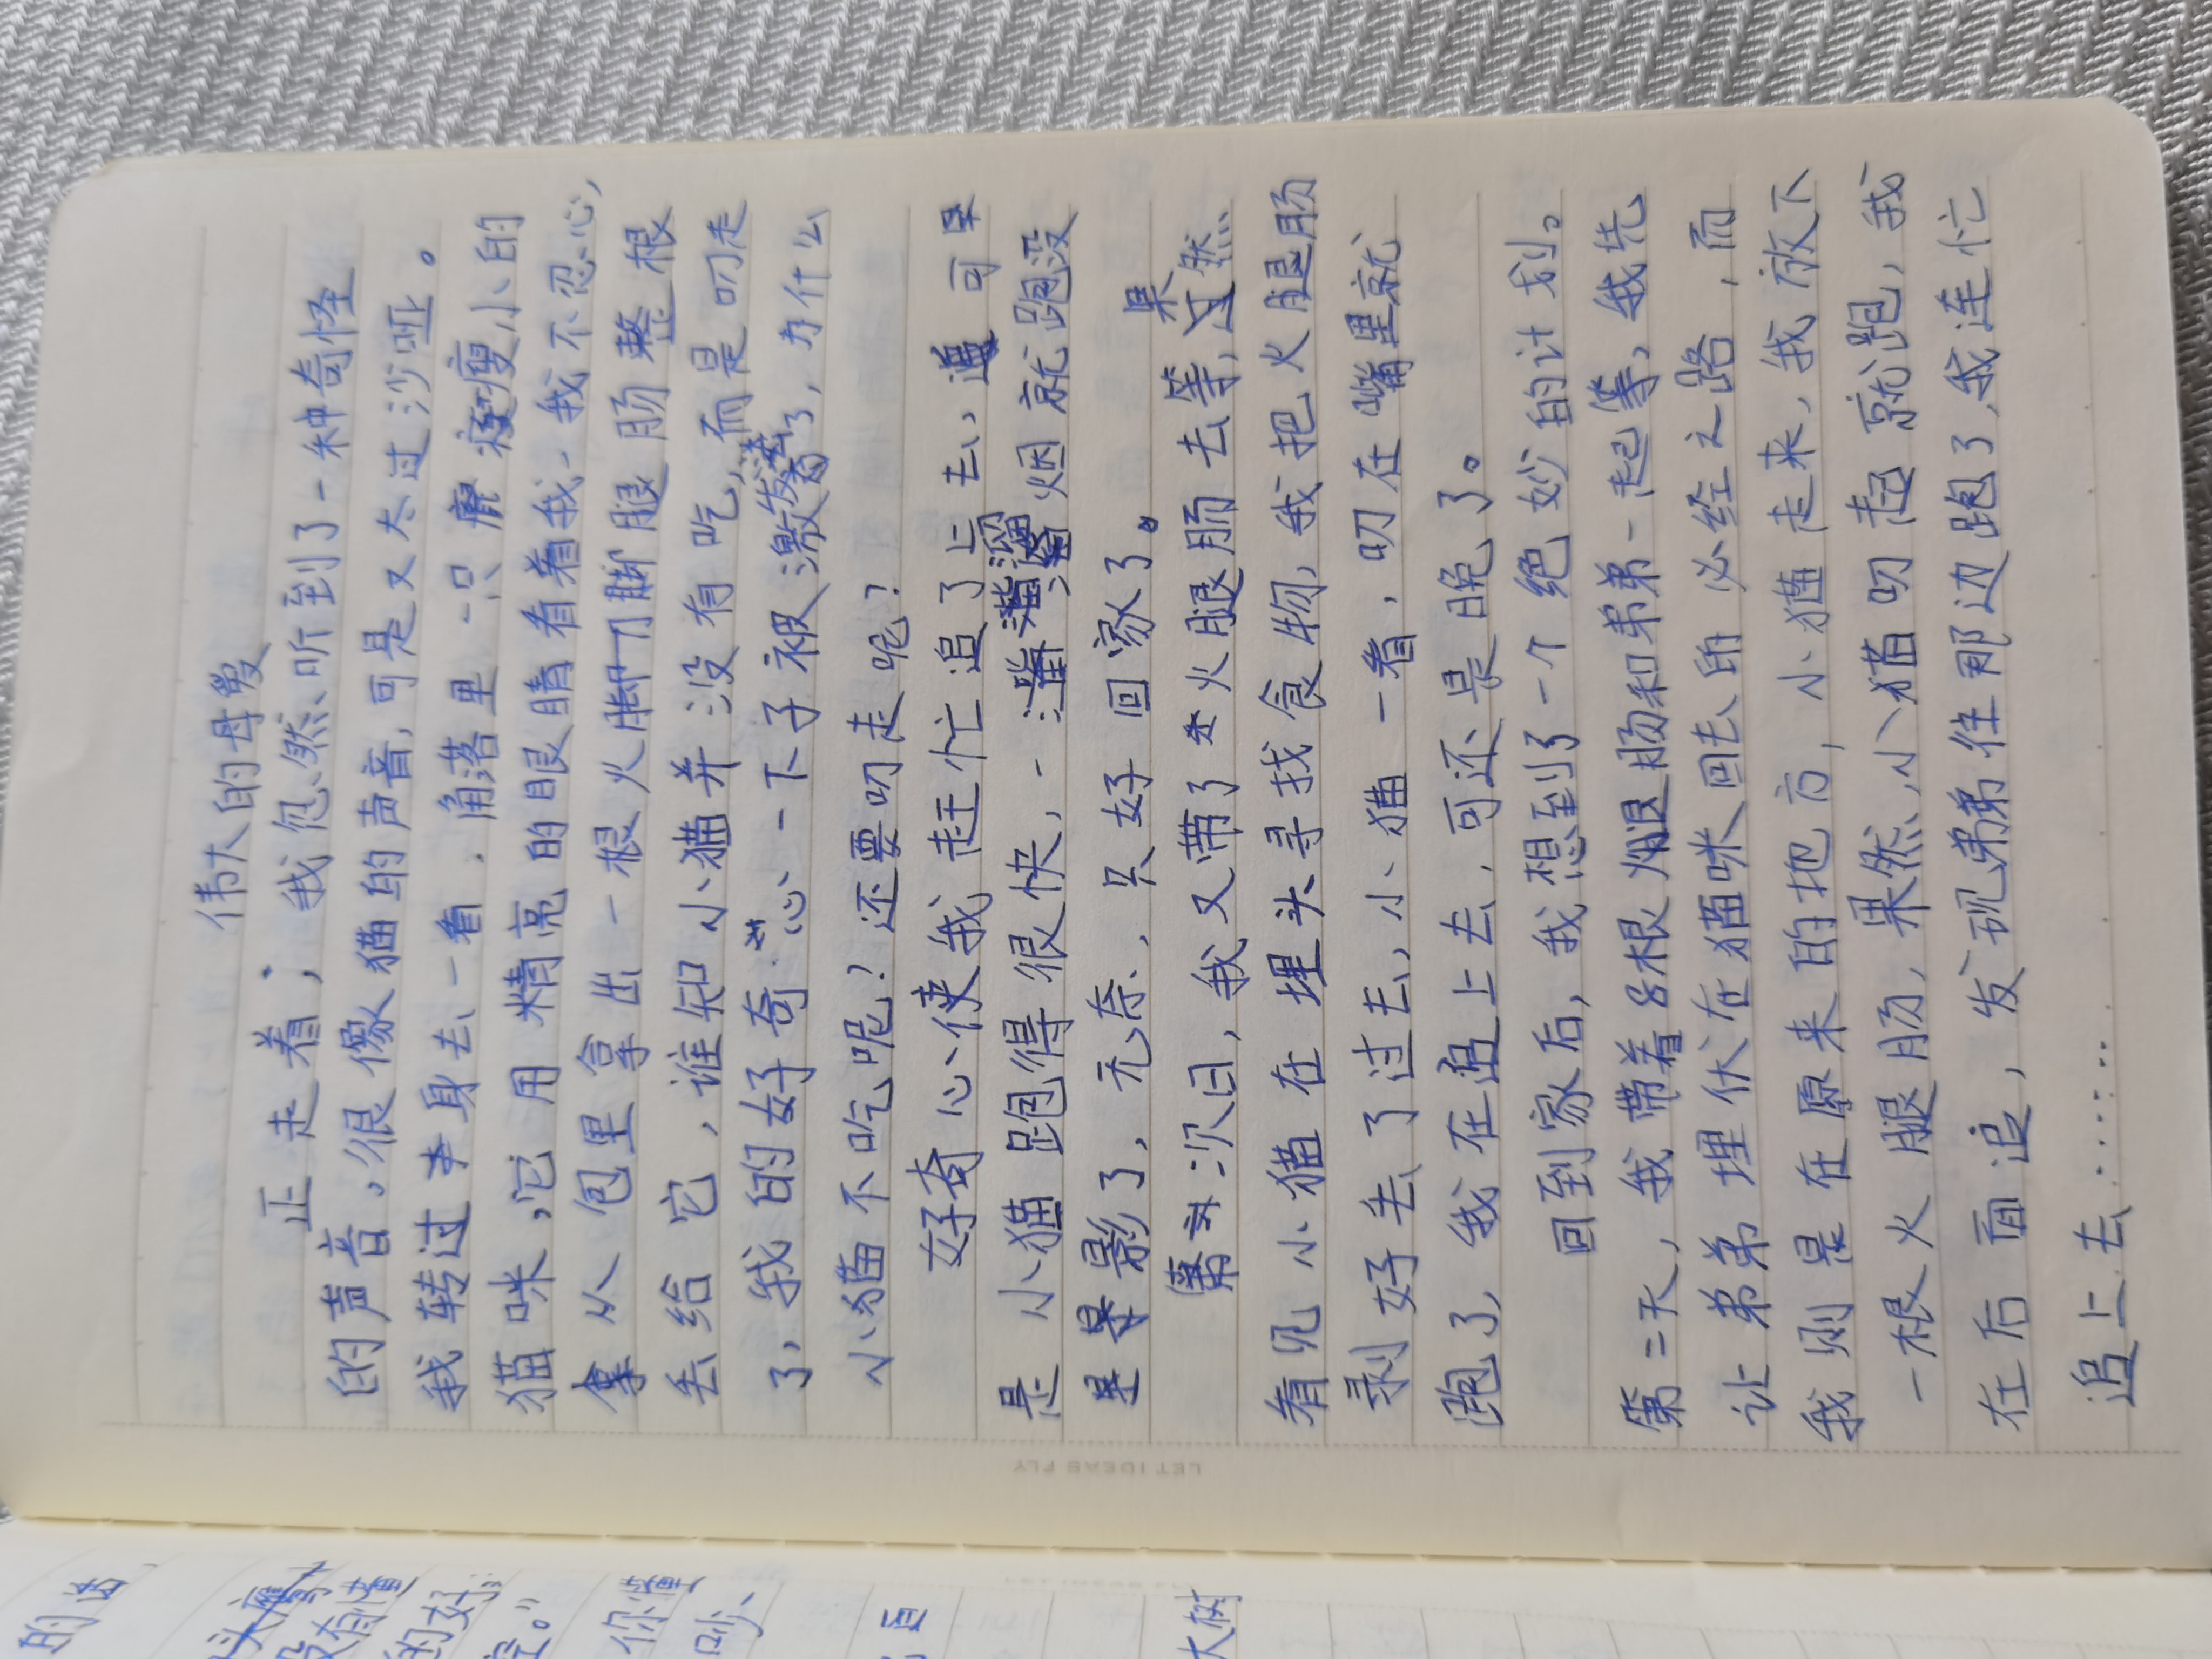 伟大的母爱
正走着，我忽然听到了一种奇怪
的声音，很像猫的声音，可是又太过沙哑。
我转过身去一看，角落里一只瘦小的
猫咪，它用精亮的眼睛看着我，我不忍心，
拿从包里拿出一根火腿肠整根
丢给它，谁知小猫并没有吃，而是叼走
了，我的好奇心一下子被激发了，为什么
小猫不吃呢？还要叼走呢？
好奇心使我赶忙追了上去，可
是小猫跑得很快，一溜烟就跑没
影了，无奈，只好回家了。
次日，我又带了火腿肠去等，果然
看见小猫在埋头寻找食物，我把火腿肠
剥好丢了过去，小猫一看，叼在嘴里就
跑了，我在追上去，可还是晚了。
回到家后，我想到了一个绝妙的计划。
第二天，我带着8根火腿肠和弟弟一起等，我先
让弟弟埋伏在猫咪回去的必经之路，而
我则是在原来的地方，小猫走来，我放下
一根火腿肠，果然，小猫叼起就跑，我
在后面追，发现弟弟往那边跑了，我连忙
追上去………
LET IDEAS FLY
的话
没有懂
的好
你懂
大树